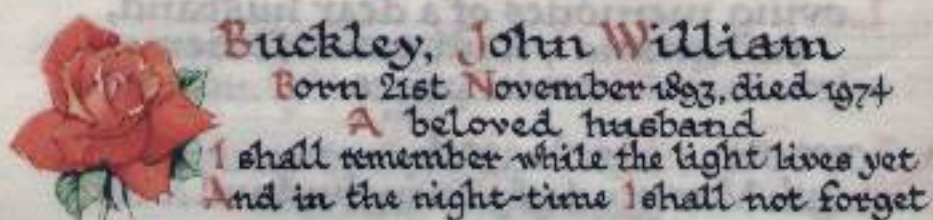 Buckley, John William
Born 21st November 1893, died 1974
A beloved husband
I shall remember while the light lives yet
And in the night-time I shall not forget